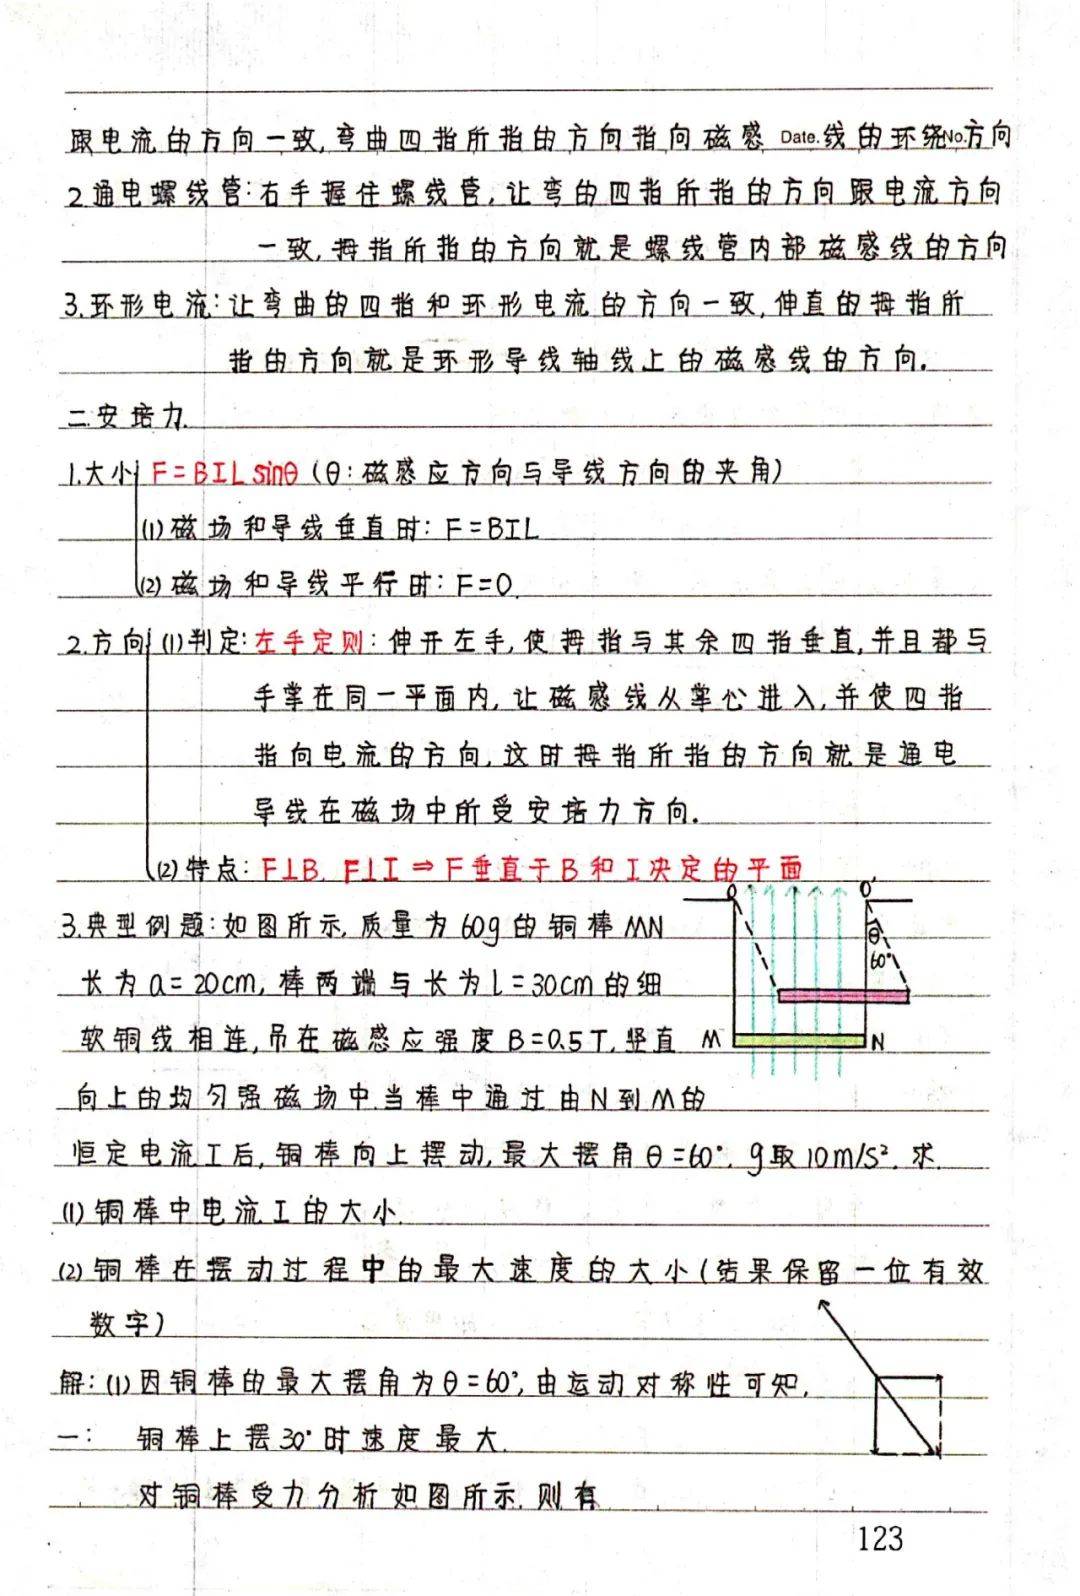 跟电流的方向一致,弯曲四指所指的方向指向磁感 Date. 线的环绕 No. 方向
2.通电螺线管:右手握住螺线管,让弯的四指所指的方向跟电流方向
一致,拇指所指的方向就是螺线管内部磁感线的方向
3.环形电流:让弯曲的四指和环形电流的方向一致,伸直的拇指所
指的方向就是环形导线轴线上的磁感线的方向.
二.安培力.
1.大小 F=BILsinθ(θ:磁感应方向与导线方向的夹角)
(1)磁场和导线垂直时:F=BIL
(2)磁场和导线平行时:F=0.
2.方向 (1)判定:左手定则:伸开左手,使拇指与其余四指垂直,并且都与
手掌在同一平面内,让磁感线从掌心进入,并使四指
指向电流的方向,这时拇指所指的方向就是通电
导线在磁场中所受安培力方向.
(2)特点:F⊥B. F⊥I ⇒ F垂直于B和I决定的平面
O O′
3.典型例题:如图所示,质量为60g的铜棒MN
θ
60°
长为a=20cm,棒两端与长为l=30cm的细
软铜线相连,吊在磁感应强度B=0.5T,竖直
M N
向上的均匀强磁场中.当棒中通过由N到M的
恒定电流I后,铜棒向上摆动,最大摆角θ=60°.g取10m/s².求.
(1)铜棒中电流I的大小.
(2)铜棒在摆动过程中的最大速度的大小(结果保留一位有效
数字)
解:(1)因铜棒的最大摆角为θ=60°,由运动对称性可知,
一: 铜棒上摆30°时速度最大.
对铜棒受力分析如图所示.则有
123